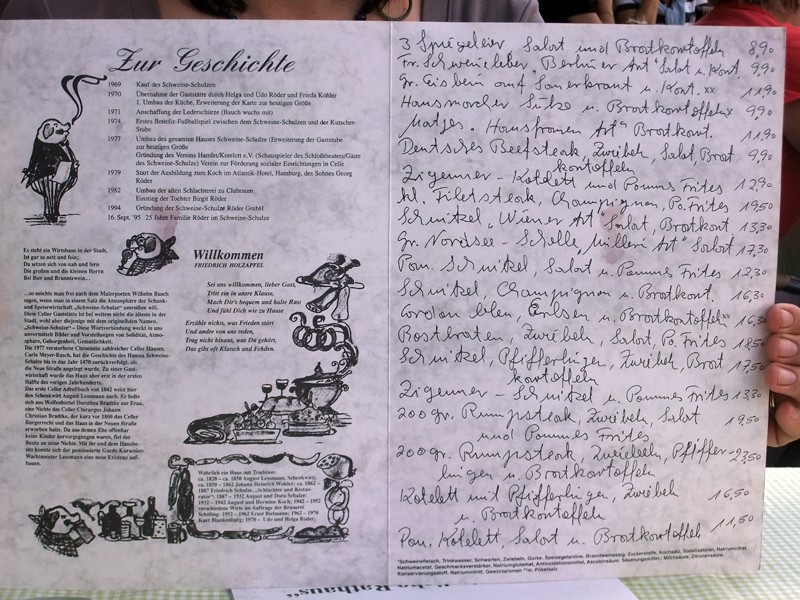 Zur Geschichte
1969 Kauf des Schweine-Schulzen
1970 Übernahme der Gaststätte durch Helga und Udo Röder und Frieda Kohler
1. Umbau der Küche, Erweiterung der Karte zur heutigen Größe
1971 Anschaffung der Lederschürze (Bauch wuchs mit)
1974 Erstes Benefiz-Fußballspiel zwischen dem Schweine-Schulzen und der Kutscher-
Stube
1977 Umbau des gesamten Hauses Schweine-Schulze (Erweiterung der Gaststube
zur heutigen Größe)
Gründung des Vereins Hamlet/Kotelett e.V. (Schauspieler des Schloßtheaters/Gäste
des Schweine-Schulze) Verein zur Förderung sozialer Einrichtungen in Celle
1979 Start der Ausbildung zum Koch im Atlantik-Hotel, Hamburg, des Sohnes Georg
Röder
1982 Umbau der alten Schlachterei zu Clubraum
Einstieg der Tochter Birgit Röder
1994 Gründung der Schweine-Schulze Röder GmbH
16. Sept. '95 25 Jahre Familie Röder im Schweine-Schulze
Es steht ein Wirtshaus in der Stadt,
Ist gar so nett und fein;
Da setzen sich von nah und fern
Die großen und die kleinen Herrn
Bei Bier und Branntewein...
Willkommen
FRIEDRICH HOLZAPFEL
Sei uns willkommen, lieber Gast,
Tritt ein in unsre Klause,
Mach Dir's bequem und halte Rast
Und fühl Dich wie zu Hause
Erzähle nichts, was Frieden stört
Und andre von uns reden,
Trag nicht hinaus, was Du gehört,
Das gibt oft Klatsch und Fehden.
...so möchte man frei nach dem Malerpoeten Wilhelm Busch
sagen, wenn man in einem Satz die Atmosphäre der Schank-
und Speisewirtschaft „Schweine-Schulze" vorstellen will.
Diese Celler Gaststätte ist bei weitem nicht die älteste in der
Stadt, wohl aber diejenige mit dem originellsten Namen.
„Schweine-Schulze" – Diese Wortverbindung weckt in uns
unvermittelt Bilder und Vorstellungen von Solidität, Atmo-
sphäre, Geborgenheit, Gemütlichkeit.
Die 1977 verstorbene Chronistin zahlreicher Celler Häuser,
Carla Meyer-Rasch, hat die Geschichte des Hauses Schweine-
Schulze bis in das Jahr 1470 zurückverfolgt, als
die Neue Straße angelegt wurde. Zu einer Gast-
wirtschaft wurde das Haus aber erst in der ersten
Hälfte des vorigen Jahrhunderts.
Das erste Celler Adreßbuch von 1842 weist hier
den Schenkwirt August Lessmann nach. Er holte
sich aus Wolfenbüttel Dorothea Bradtke zur Frau,
eine Nichte des Celler Chirurgen Johann
Christian Bradtke, der kurz vor 1800 das Celler
Bürgerrecht und das Haus in der Neuen Straße
erworben hatte. Da aus dessen Ehe offenbar
keine Kinder hervorgegangen waren, fiel der
Besitz an seine Nichte. Mit ihr und dem Hausbe-
sitz konnte sich der pensionierte Garde-Kürassier-
Wachtmeister Lessmann eine neue Existenz auf-
bauen.
Wahrlich ein Haus mit Tradition:
ca. 1820 – ca. 1850 August Lessmann, Schenkwirt;
ca. 1850 – 1862 Johann Heinrich Wohler; ca. 1862 –
1887 Friedrich Schulze, „Schlachter und Restau-
rateur"; 1887 – 1932 August und Dora Schulze;
1932 – 1942 August und Hermine Koch; 1942 – 1952
verschiedene Wirte im Auftrage der Brauerei
Schilling; 1952 – 1962 Ernst Bielmann; 1962 – 1970
Kurt Blankenburg; 1970 – Udo und Helga Röder.
3 Spiegeleier Salat und Bratkartoffeln 8,90
Fr. Schweineleber, Berliner Art" Salat u. Kart. 9,90
gr. Eisbein auf Sauerkraut u. Kart. xx 11,90
Hausmacher Sülze u. Bratkartoffeln x 9,90
Matjes „Hausfrauen Art" Bratkart. 11,90
Deutsches Beefsteak, Zwiebeln, Salat, Brat 9,90
kartoffeln
Zigeuner – Kotelett und Pommes Frites 12,90
kl. Filetsteak, Champignon, Po. Frites 19,50
Schnitzel „Wiener Art" Salat, Bratkart 13,30
gr. Nordsee – Scholle „Müllerin Art" Salat 17,30
Pan. Schnitzel, Salat u. Pommes Frites 12,30
Schnitzel, Champignon u. Bratkart. 16,30
Cordon bleu, Erbsen u. Bratkartoffeln xx 16,30
Rostbraten, Zwiebeln, Salat, Po. Frites 18,50
Schnitzel, Pfifferlingen, Zwiebeln, Brat 17,50
kartoffeln
Zigeuner – Schnitzel u. Pommes Frites 13,30
200 gr. Rumpsteak, Zwiebeln, Salat 19,50
und Pommes Frites
200 gr. Rumpsteak, Zwiebeln, Pfiffer – 23,50
lingen u. Bratkartoffeln
Kotelett mit Pfifferlingen, Zwiebeln 16,50
u. Bratkartoffeln
Pan. Kotelett Salat u. Bratkartoffel 11,50
*Schweinefleisch, Trinkwasser, Schwarten, Zwiebeln, Gurke, Speisegelatine, Branntweinessig, Zuckerstoffe, Kochsalz, Stabilisatoren, Natriumcitrat,
Natriumacetat, Geschmacksverstärker, Natriumglutamat, Antioxidationsmittel, Ascorbinsäure, Säuerungsmittel, Milchsäure, Zitronensäure,
Konservierungsstoff, Natriumnitrit, Gewürzaromen **m. Pökelsalz
Rathaus"